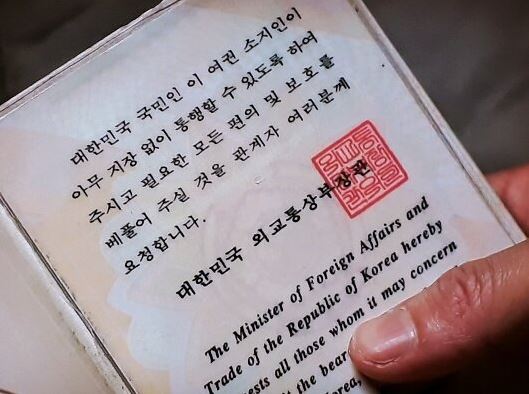 대한민국 국민인 이 여권 소지인이
아무 지장 없이 통행할 수 있도록 하여
주시고 필요한 모든 편의 및 보호를
베풀어 주실 것을 관계자 여러분께
요청합니다.
대한민국 외교통상부장관
The Minister of Foreign Affairs and
Trade of the Republic of Korea hereby
ests all those whom it may concern
it the bear
orea,